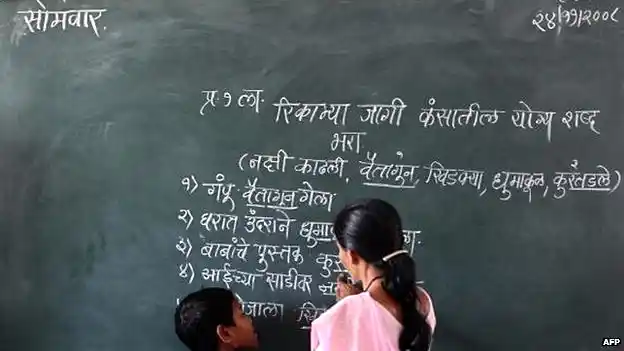 सोमवार.
२४/११/२००८
प्र. १ ला. रिकाम्या जागी कंसातील योग्य शब्द
भरा
(नक्षी काढली, वैतागून, खिडक्या, धुमाकूळ, कुरतडले)
१) गंपू वैतागून गेला
२) घरात उंदराने
३) बाबांचे पुस्तक
४) आईच्या साडीवर
AFP